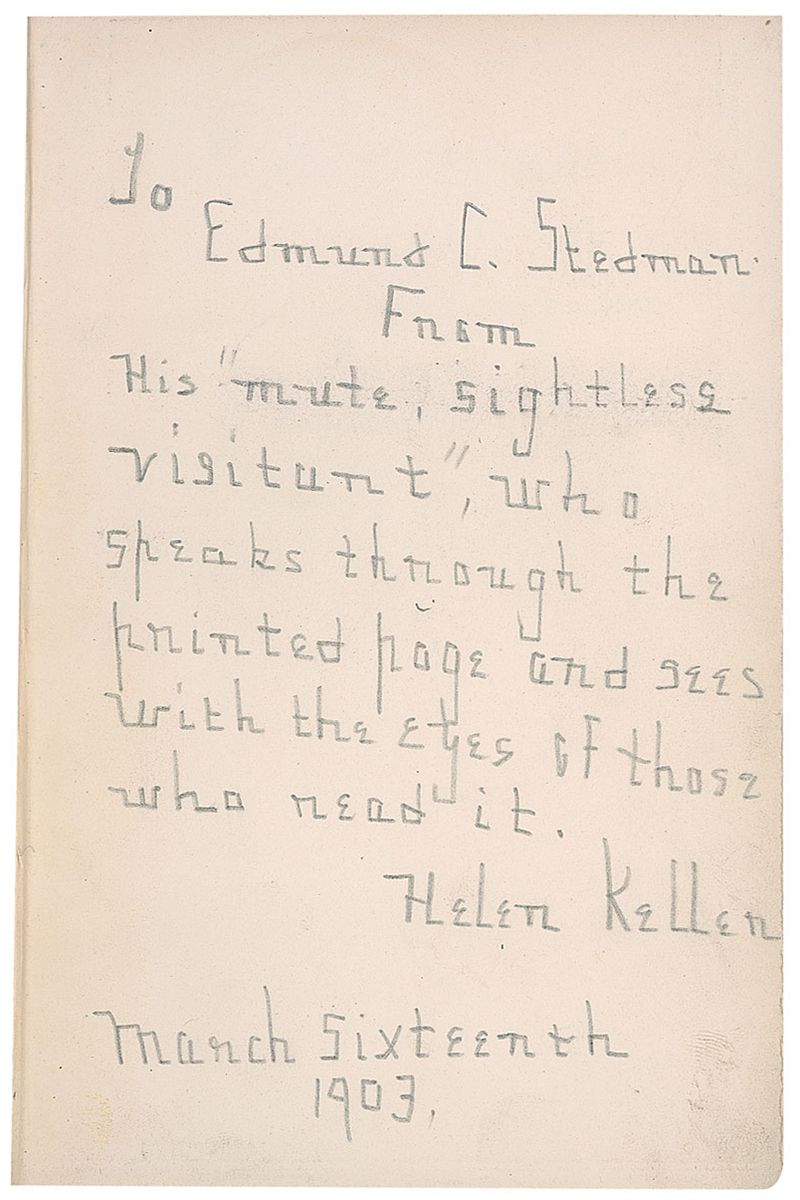 To
Edmund C. Stedman.
From
His "mute, sightless
visitant", who
speaks through the
printed page and sees
with the eyes of those
who read it.
Helen Keller
March Sixteenth
1903.